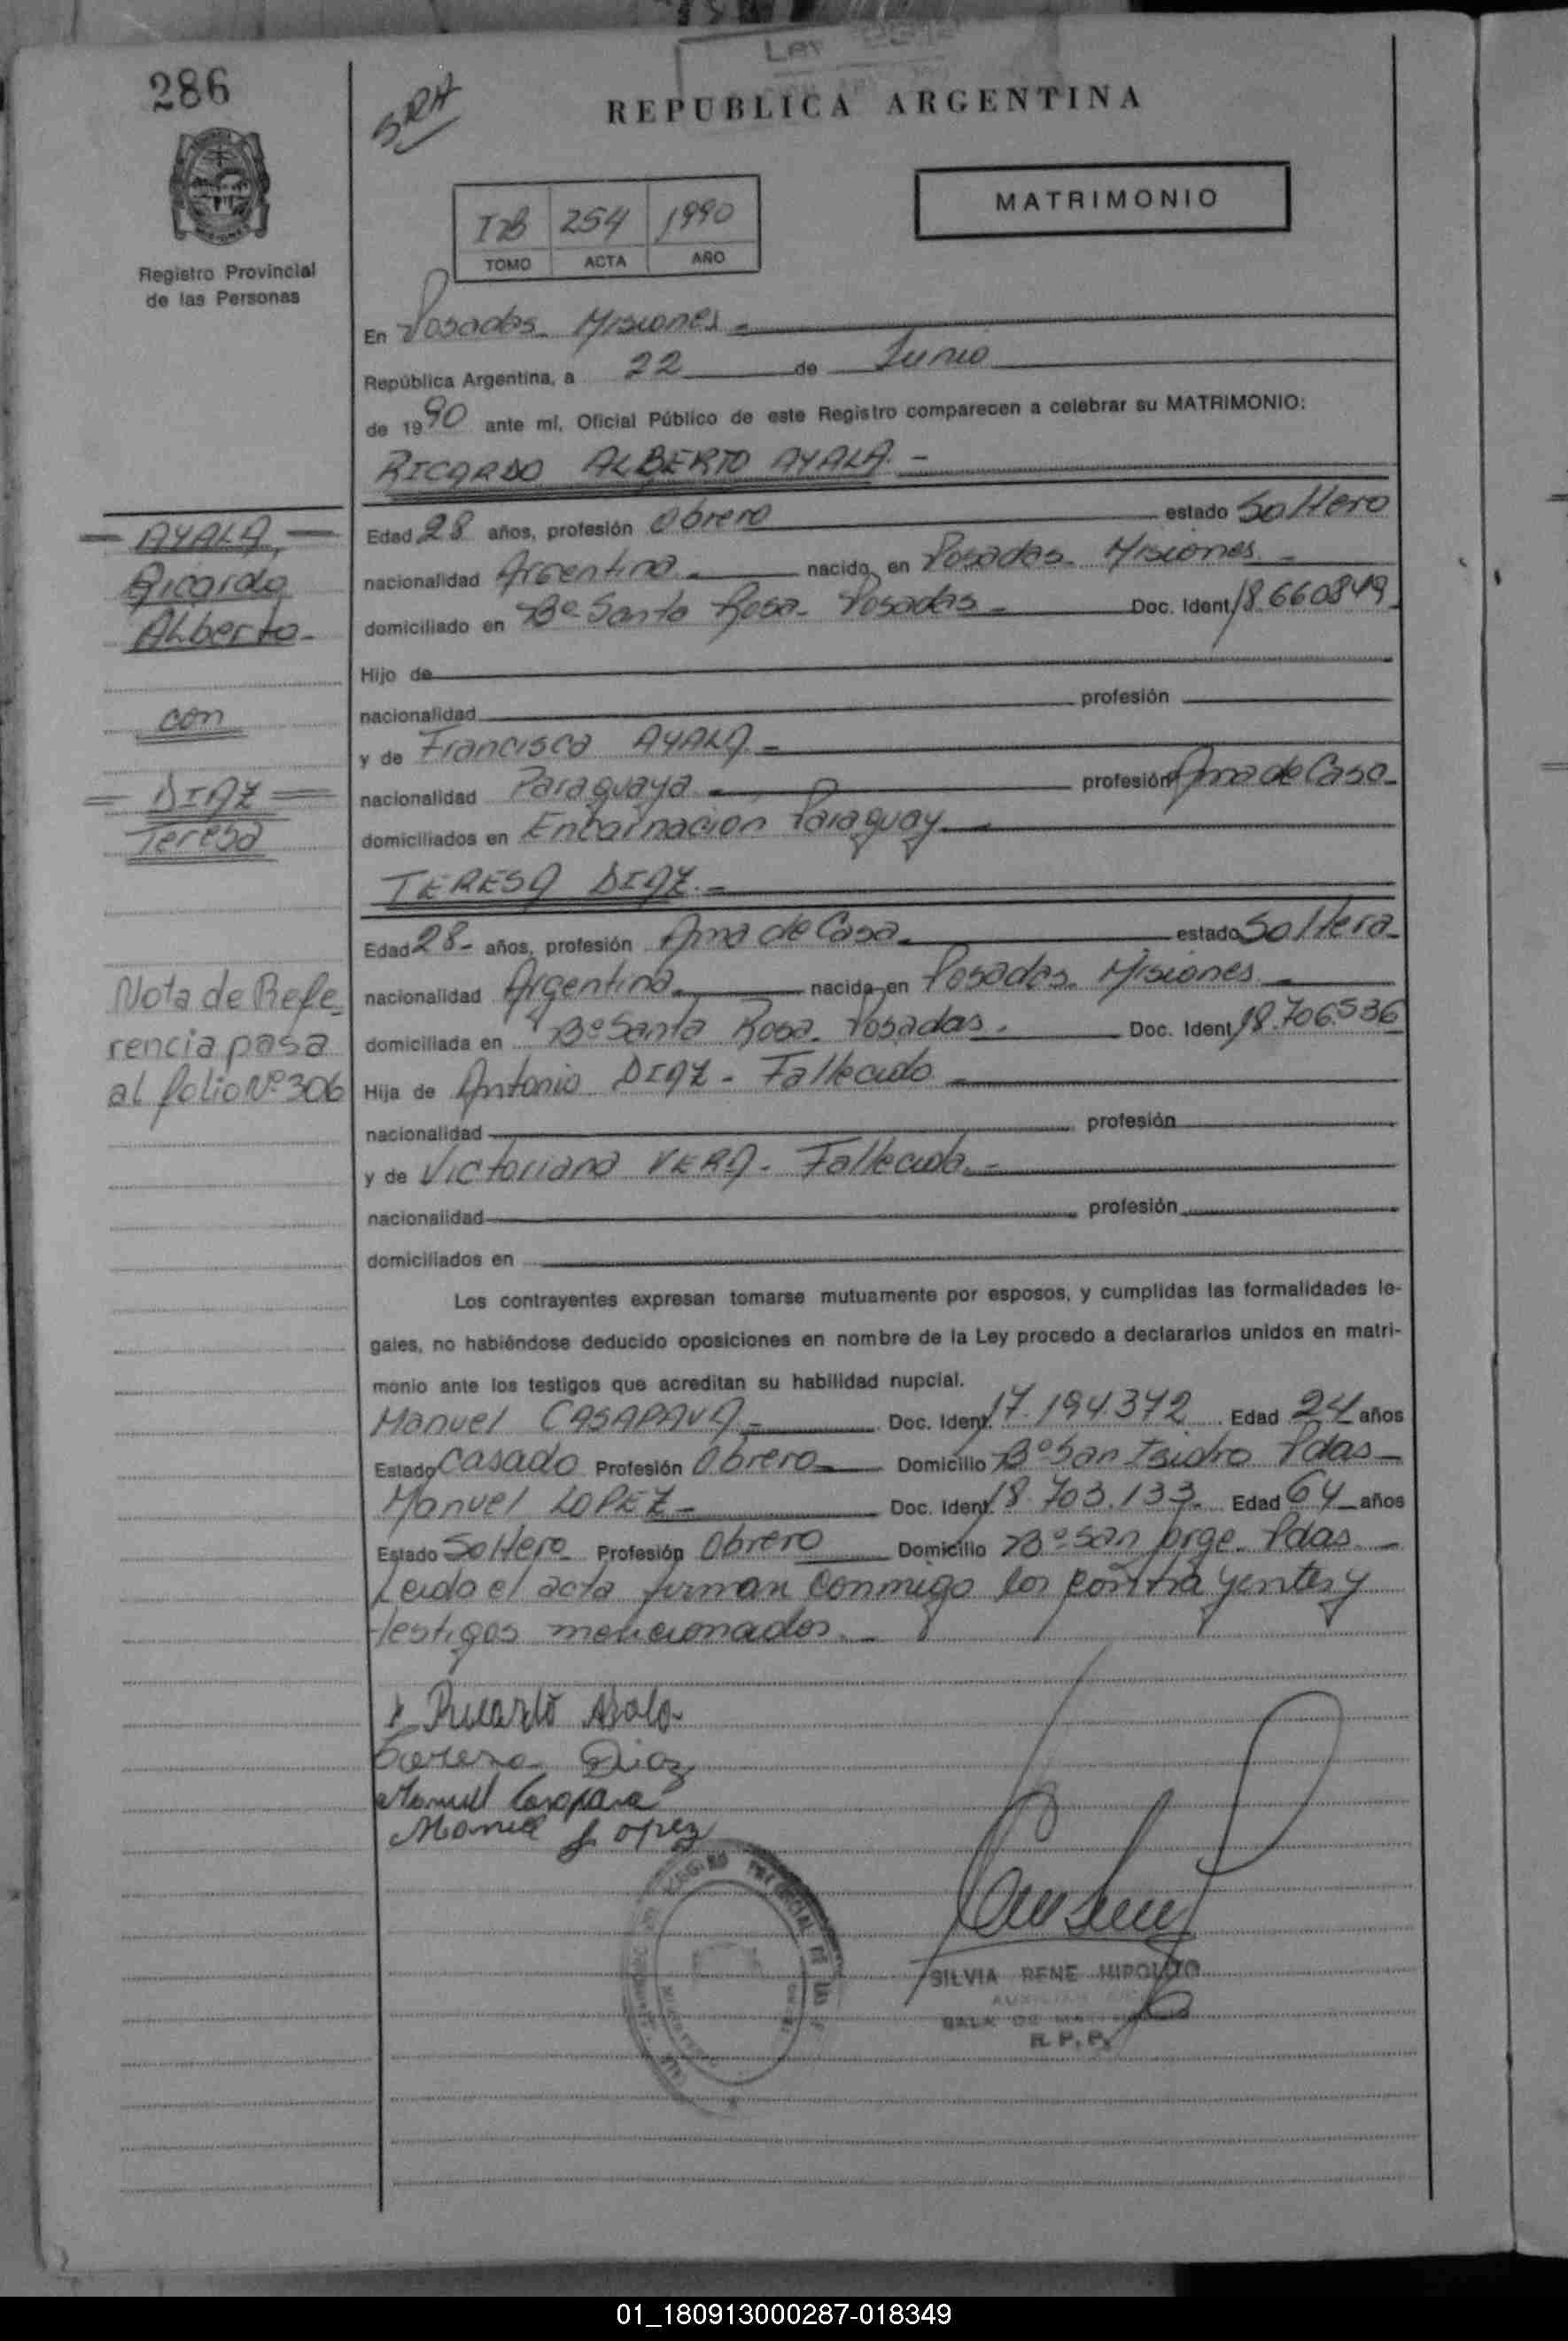 286
Ley
SRA
REPUBLICA ARGENTINA
MATRIMONIO
254 1990
TOMO ACTA AÑO
Registro Provincial
de las Personas
En Posadas Misiones
República Argentina, a 22 de Junio
de 1990 ante mí, Oficial Público de este Registro comparecen a celebrar su MATRIMONIO:
RICARDO ALBERTO AYALA.-
AYALA,
Ricardo
Alberto-
con
DIAZ
Teresa
Nota de Refe-
rencia pasa
al folio Nº 306
Edad 28 años, profesión Obrero estado Soltero
nacionalidad Argentina nacido en Posadas Misiones
domiciliado en Bº Santa Rosa Posadas Doc. Ident. 18.660849
Hijo de
nacionalidad profesión
y de Francisca AYALA
nacionalidad Paraguaya profesión Ama de Casa
domiciliados en Encarnacion Paraguay
TERESA DIAZ.-
Edad 28 años, profesión Ama de Casa estado Soltera
nacionalidad Argentina nacida en Posadas Misiones
domiciliada en Bº Santa Rosa Posadas Doc. Ident. 18.706.536
Hija de Antonio DIAZ - Fallecido
nacionalidad profesión
y de Victoriana VERA - Fallecida
nacionalidad profesión
domiciliados en
Los contrayentes expresan tomarse mutuamente por esposos, y cumplidas las formalidades le-
gales, no habiéndose deducido oposiciones en nombre de la Ley procedo a declararlos unidos en matri-
monio ante los testigos que acreditan su habilidad nupcial.
Manuel CASAPAVA Doc. Ident. 17.194.372 Edad 24 años
Estado Casado Profesión Obrero Domicilio Bº San Isidro Pdas
Manuel LOPEZ Doc. Ident. 18.703.133 Edad 64 años
Estado Soltero Profesión Obrero Domicilio Bº San Jorge Pdas
Leido el acta firman conmigo los contrayentes y
testigos mencionados.
Ricardo Ayala
Teresa Diaz
Manuel Casapava
Manuel Lopez
SILVIA RENE HIPOLITO
SALA DE
R. P. P.
01_180913000287-018349